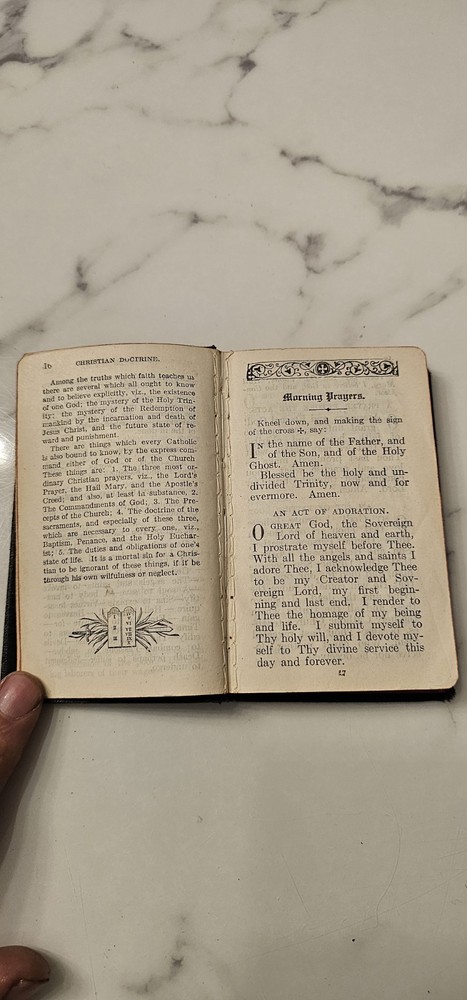 16 CHRISTIAN DOCTRINE.
Among the truths which faith teaches us
there are several which all ought to know
and to believe explicitly, viz., the existence
of one God; the mystery of the Holy Trin-
ity; the mystery of the Redemption of
mankind by the incarnation and death of
Jesus Christ, and the future state of re-
ward and punishment.
There are things which every Catholic
is also bound to know, by the express com-
mand either of God or of the Church
These things are: 1. The three most or-
dinary Christian prayers, viz., the Lord's
Prayer, the Hail Mary, and the Apostle's
Creed; and also, at least in substance, 2.
The Commandments of God; 3. The Pre-
cepts of the Church; 4. The doctrine of the
sacraments, and especially of these three,
which are necessary to every one, viz.,
Baptism, Penance, and the Holy Euchar-
ist; 5. The duties and obligations of one's
state of life. It is a mortal sin for a Chris-
tian to be ignorant of these things, if it be
through his own wilfulness or neglect.
Morning Prayers.
Kneel down, and making the sign
of the cross ✠, say:
IN the name of the Father, and
of the Son, and of the Holy
Ghost. Amen.
Blessed be the holy and un-
divided Trinity, now and for
evermore. Amen.
AN ACT OF ADORATION.
O GREAT God, the Sovereign
Lord of heaven and earth,
I prostrate myself before Thee.
With all the angels and saints I
adore Thee, I acknowledge Thee
to be my Creator and Sov-
ereign Lord, my first begin-
ning and last end. I render to
Thee the homage of my being
and life. I submit myself to
Thy holy will, and I devote my-
self to Thy divine service this
day and forever.
17